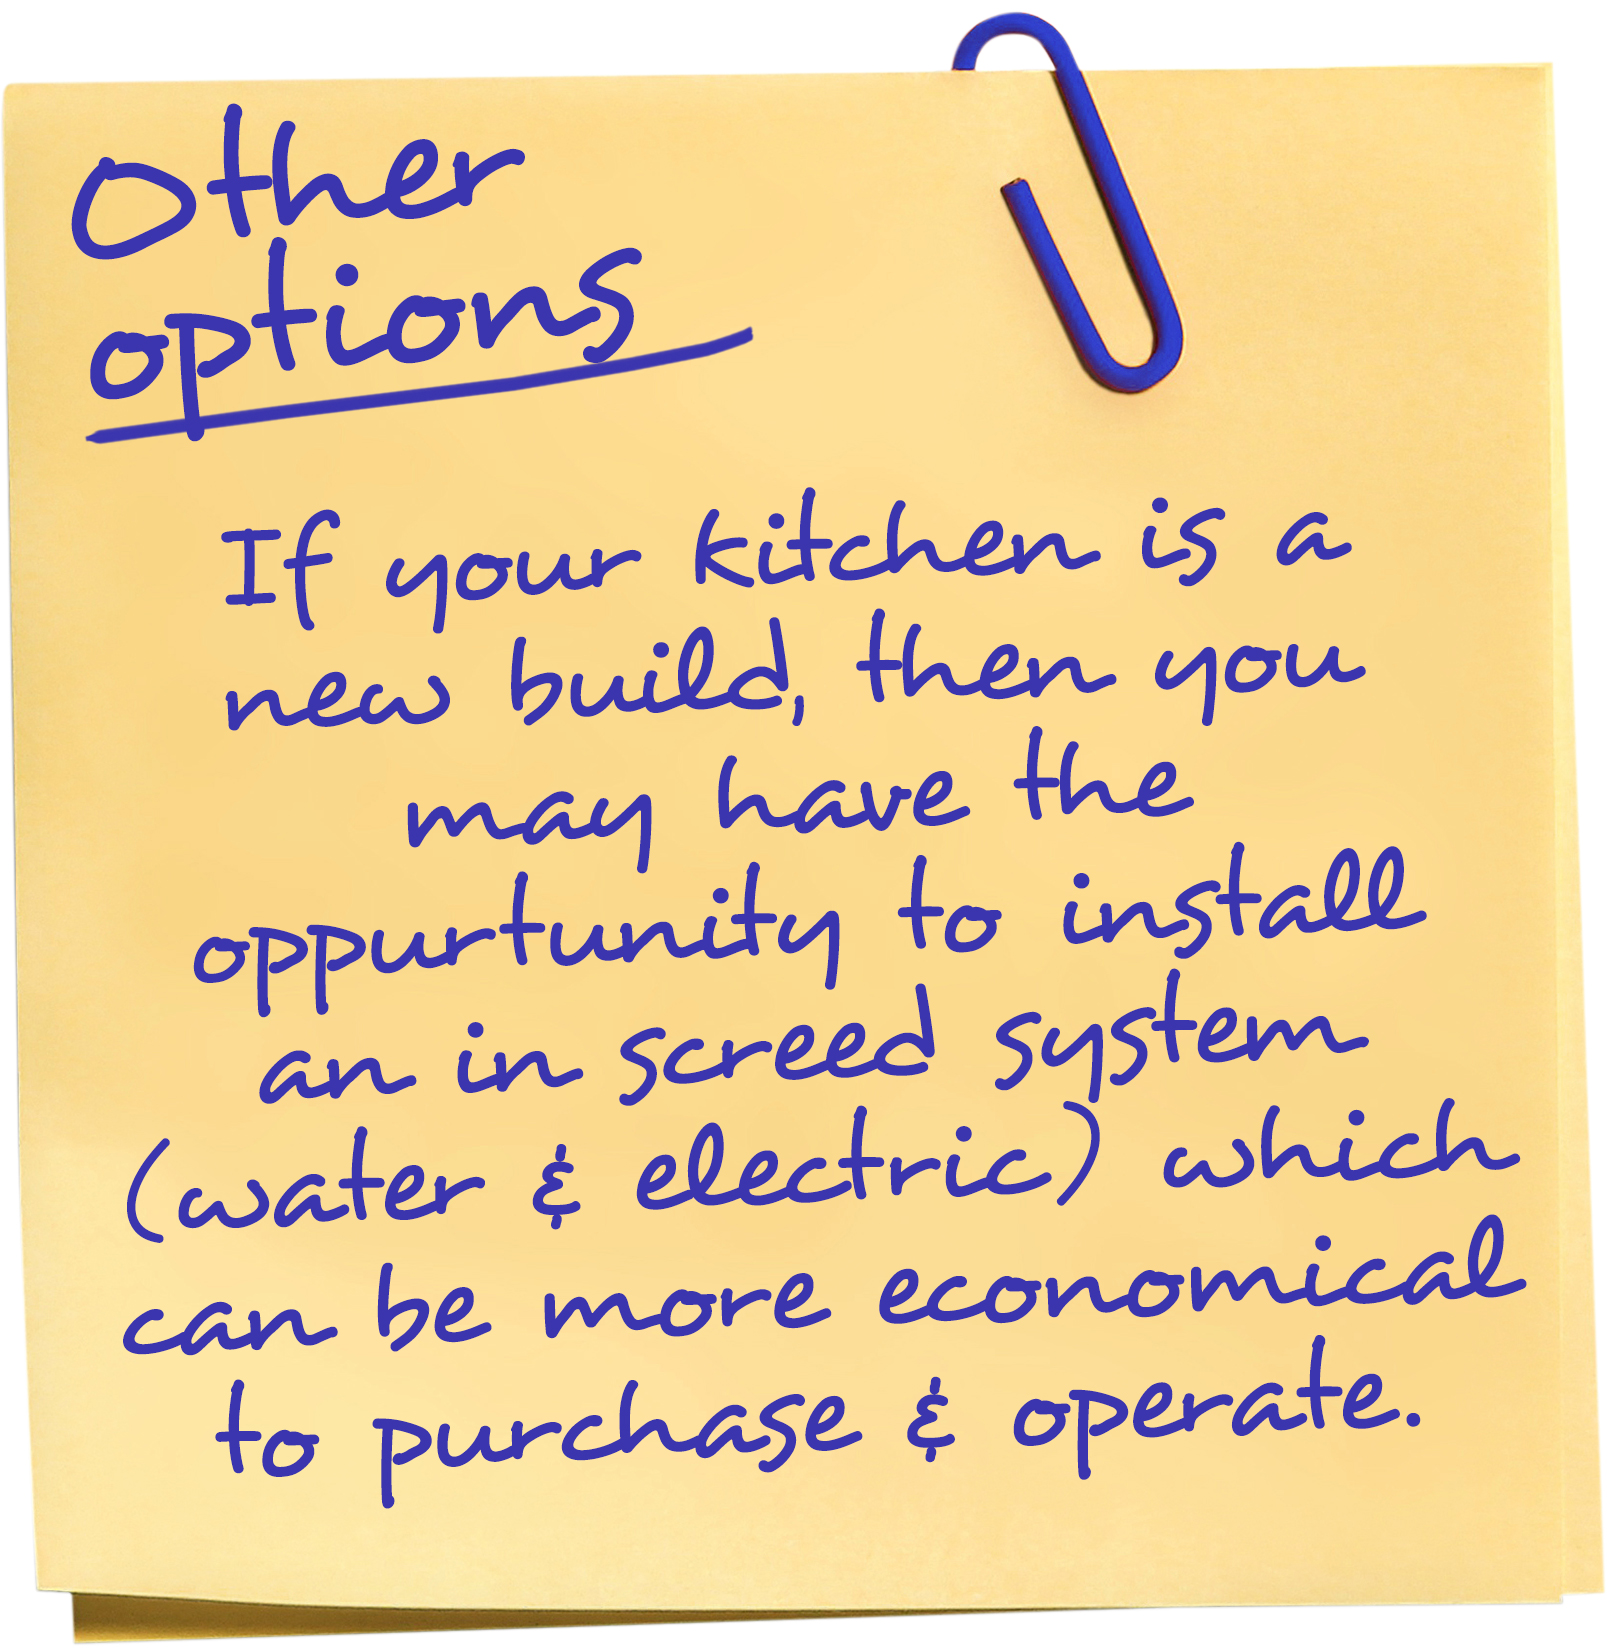 Other
options
If your kitchen is a
new build, then you
may have the
oppurtunity to install
an in screed system
(water & electric) which
can be more economical
to purchase & operate.